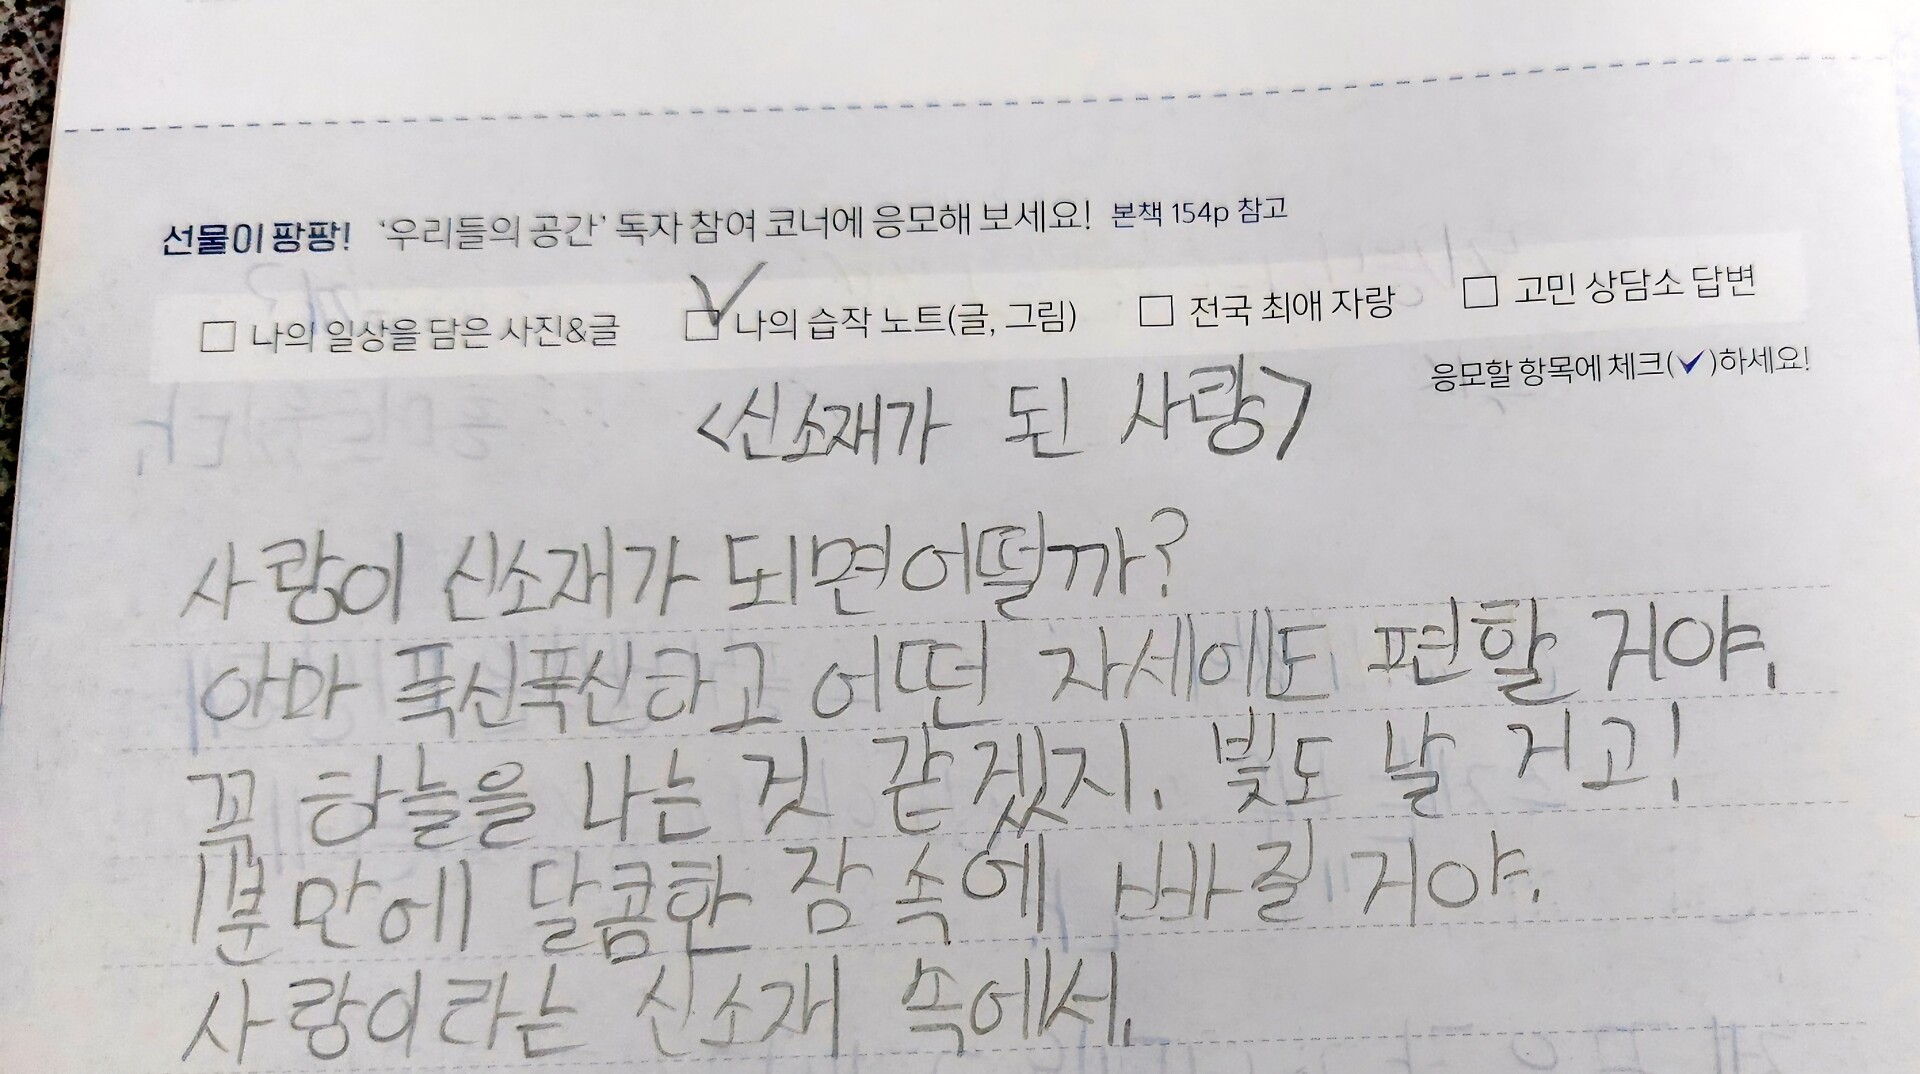 선물이 팡팡! '우리들의 공간' 독자 참여 코너에 응모해 보세요! 본책 154p 참고
□ 나의 일상을 담은 사진&글 ☑ 나의 습작 노트(글, 그림) □ 전국 최애 자랑 □ 고민 상담소 답변
응모할 항목에 체크(✓)하세요!
<신소재가 된 사랑>
사랑이 신소재가 되면 어떨까?
아마 푹신푹신하고 어떤 자세에도 편할 거야.
꼭 하늘을 나는 것 같겠지. 빛도 날 거고!
1분 만에 달콤한 잠 속에 빠질 거야.
사랑이라는 신소재 속에서.